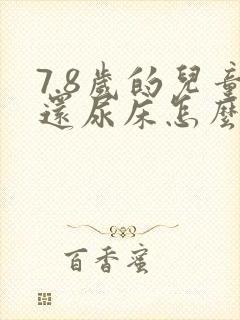 7.8歲的兒童
還尿床怎麼
百香蜜